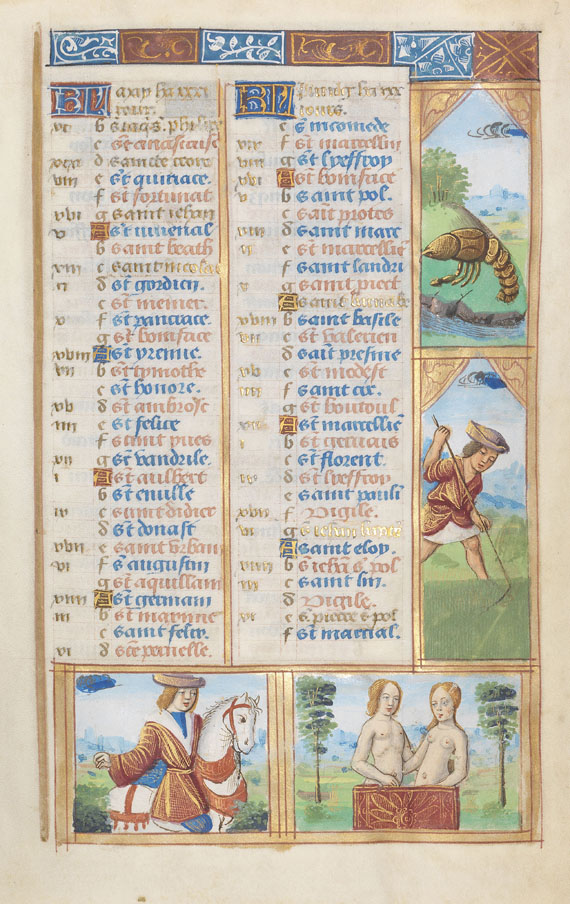 KL may ha xxxi
iours.
vi b s iaqs. philipe
c st anastaise
xix d saincte croix
viii e st quiriace.
f st fortunat
xvi g saint iehan
v A st iuvenal
b saint beath
xiii c saint nicolas
ii d st gordien.
e st meiner.
x f st pancrace.
g st boniface
xviii A st prenne.
vii b st tymothe
c st honore.
xv d st ambroise
iiii e st felice
f saint yues
xii g st vandrile.
i A st aulbert
b st emille
ix c saint didier
d st donast
xvii e saint urban
vi f st augustin
g st aquillain
xiiii A st germain
iii b st maxime
c saint felix.
xi d ste petnelle.
KL iuing ha xxx
iours.
e st nicomede
xix f st marcellin
viii g st lyeffroy
xvi A st boniface
v b saint pol.
c saint protes
xiii d saint marc
ii e st marcellie
f saint landri
x g saint piect
A saint barnabe
xviii b saint basile
vii c st valerien
d saint presme
xv e st modest
iiii f saint cir.
g st boutoul
xii A st marcellie
i b st geruais
c st florent.
ix d st lyeffroy
e saint pauli
xvii f Vigile.
vi g s iehan bapte
A saint eloy.
xiiii b s iehan s pol
iii c saint lin.
d Vigile.
xi e s. pierre s pol
f st marcial.
2